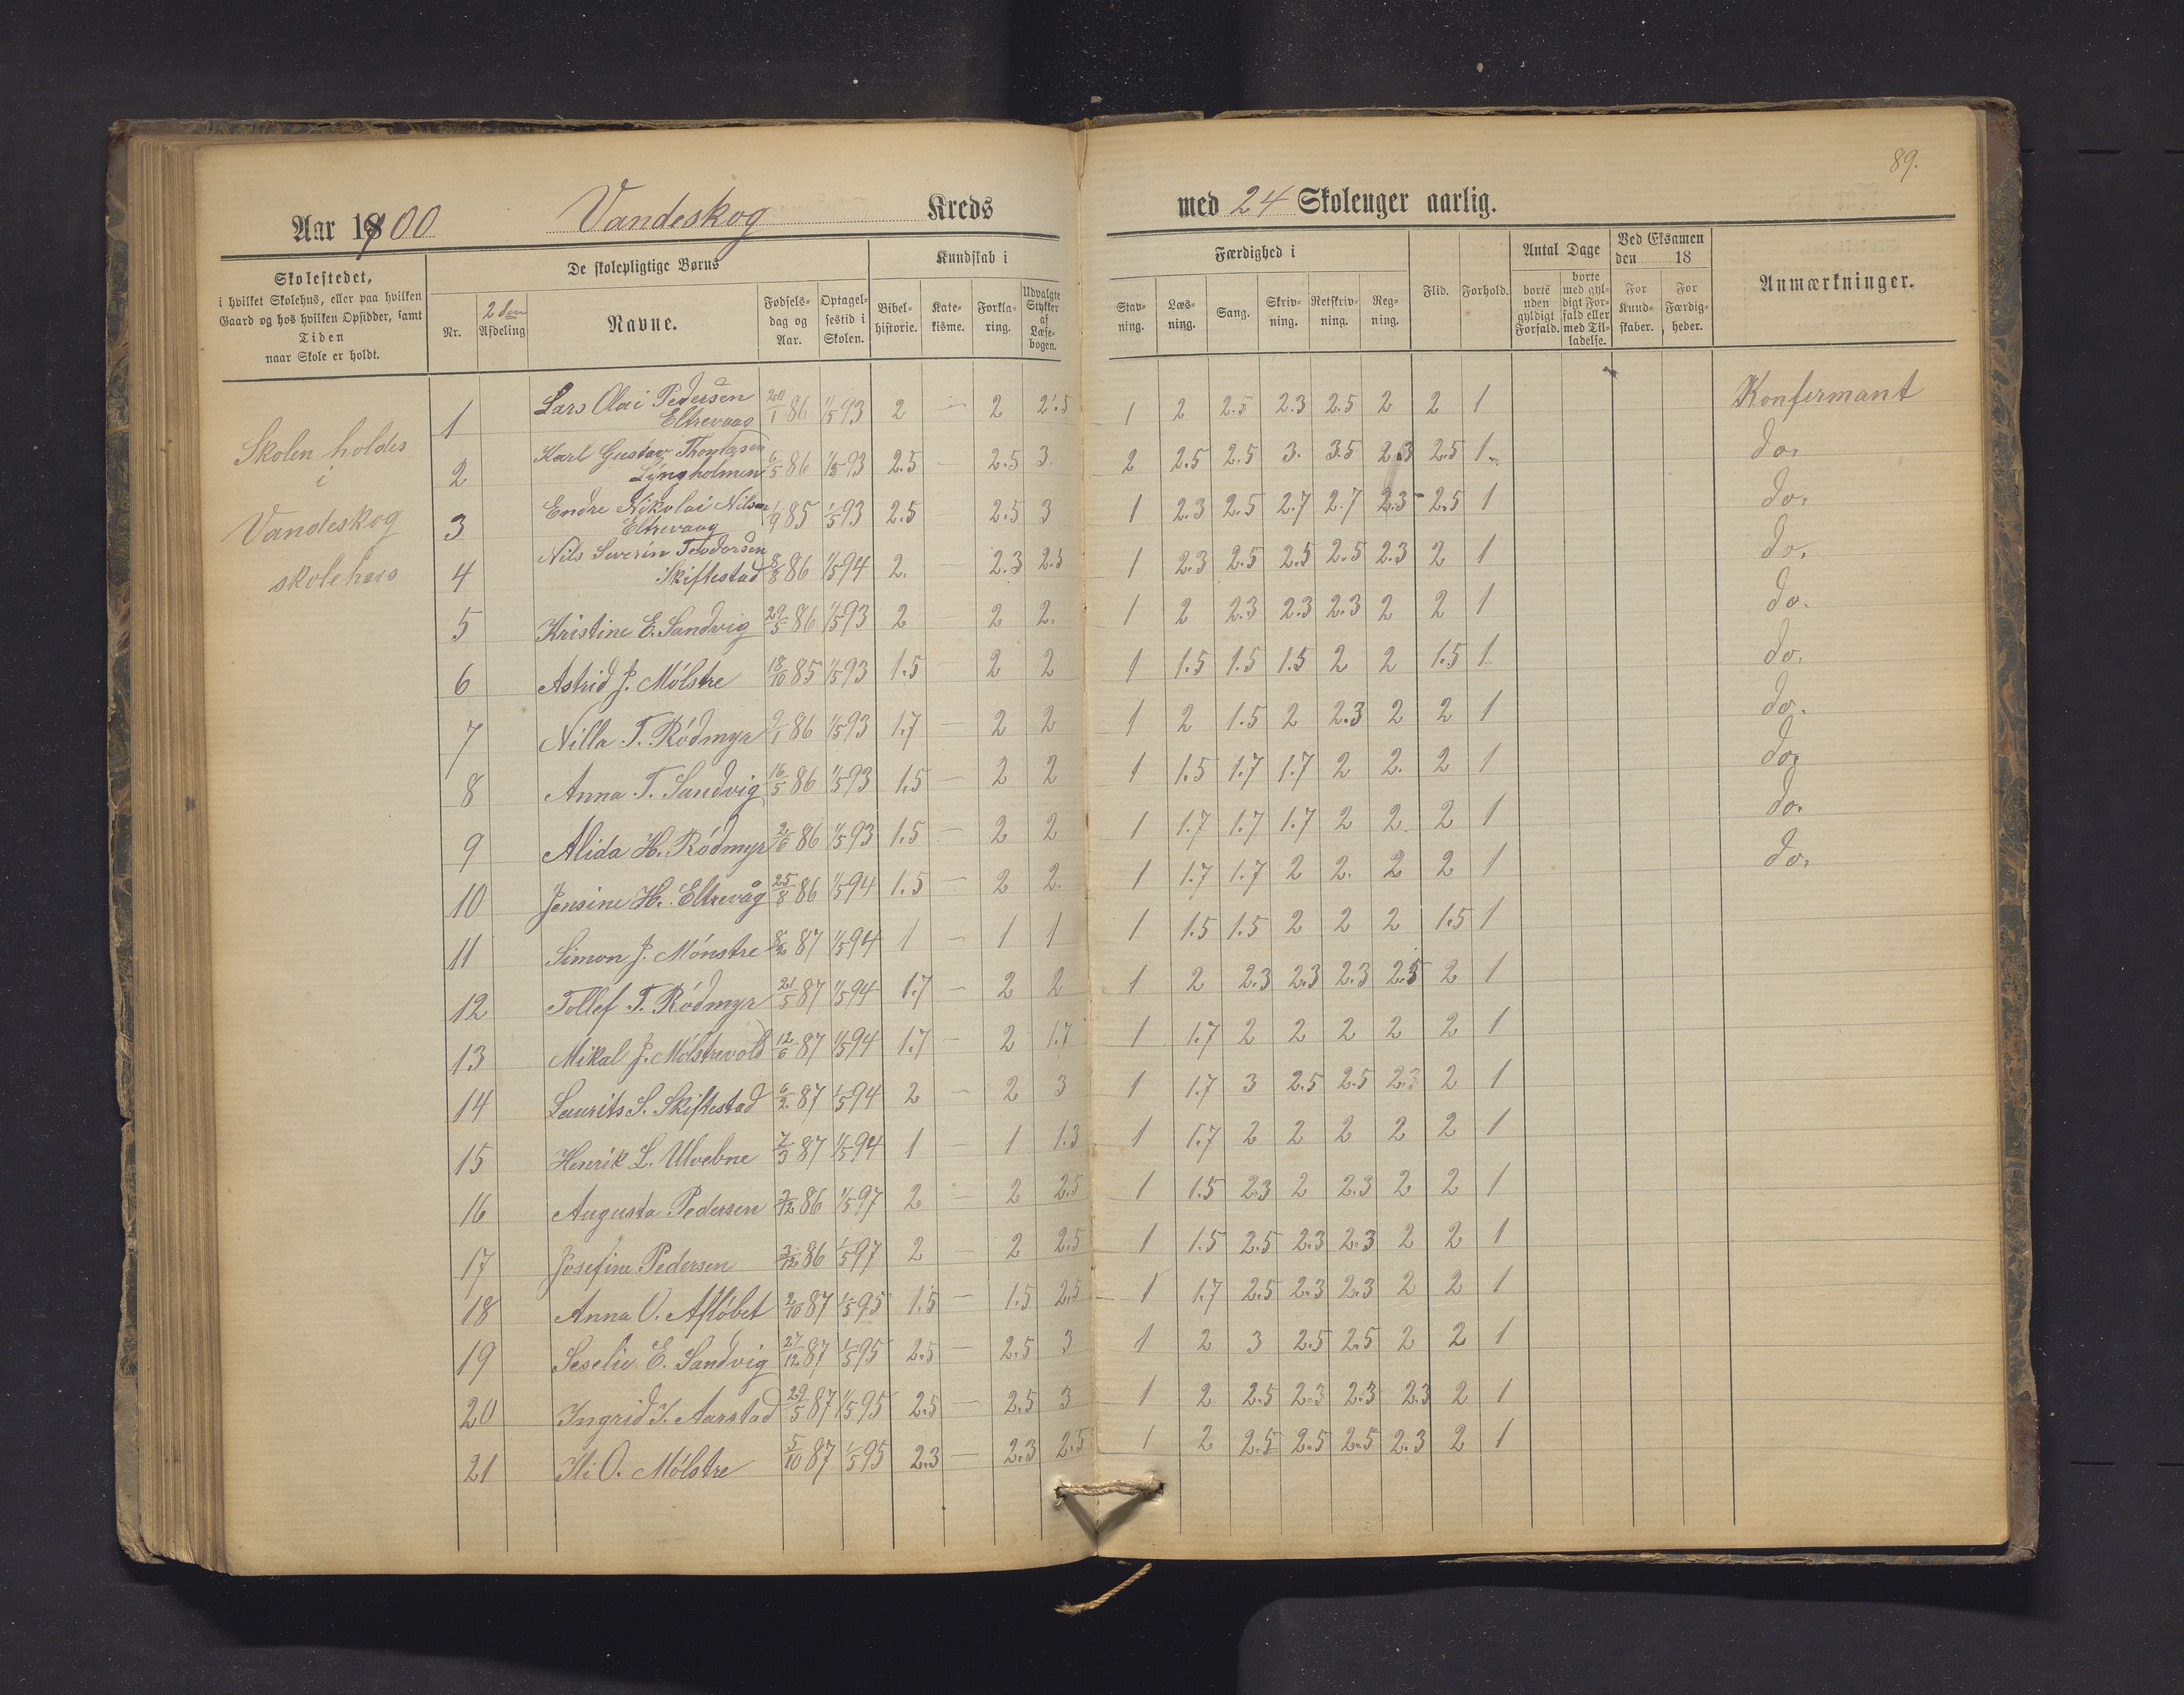 89.
Aar 1900 Vandeskog Kreds med 24 Skoleuger aarlig.
Skolestedet,
i hvilket Skolehus, eller paa hvilken
Gaard og hos hvilken Opsidder, samt
Tiden
naar Skole er holdt.
De skolepligtige Børns
Nr.
2den
Afdeling
Navne.
Fødsels-
dag og
Aar.
Optagel-
sestid i
Skolen.
Kundskab i
Bibel-
historie.
Kate-
kisme.
Forkla-
ring.
Udvalgte
Stykker
af
Læse-
bogen.
Færdighed i
Stav-
ning.
Læs-
ning.
Sang.
Skriv-
ning.
Retskriv-
ning.
Reg-
ning.
Flid.
Forhold.
Antal Dage
borte
uden
gyldigt
Forfald.
borte
med gyl-
digt For-
fald eller
med Til-
ladelse.
Ved Eksamen
den 18
For
Kund-
skaber.
For
Færdig-
heder.
Anmærkninger.
Skolen holdes
i
Vandeskog
skolehus
1 Lars Olai Pedersen
Eltrevaag 20/1 86 1/5 93 2 — 2 2.5 1 2 2.5 2.3 2.5 2 2 1 Konfirmant
2 Karl Gustav Thomassen
Lyngholmen 6/5 86 1/5 93 2.5 — 2.5 3. 2 2.5 2.5 3. 3.5 2.3 2.5 1 do.
3 Endre Nikolai Nilsen
Eltrevaag 1/9 85 1/5 93 2.5 — 2.5 3 1 2.3 2.5 2.7 2.7 2.3 2.5 1 do.
4 Nils Severin Teodorsen
Skiftestad 8/8 86 1/5 94 2. 2.3 2.5 1 2.3 2.5 2.5 2.5 2.3 2 1 do.
5 Kristine E. Sandvig 29/5 86 1/5 93 2 — 2 2. 1 2 2.3 2.3 2.3 2 2 1 do.
6 Astrid J. Mólstre 18/10 85 1/5 93 1.5 2 2 1 1.5 1.5 1.5 2 2 1.5 1 do.
7 Nilla T. Ródmyr 9/1 86 1/5 93 1.7 — 2 2 1 2 1.5 2 2.3 2 2 1 do.
8 Anna T. Sandvig 16/5 86 1/5 93 1.5 — 2 2 1 1.5 1.7 1.7 2 2. 2 1 do.
9 Alida H. Ródmyr 2/6 86 1/5 93 1.5 — 2 2 1 1.7 1.7 1.7 2 2. 2 1 do.
10 Jensine H. Eltrevåg 25/8 86 1/5 94 1.5 — 2 2. 1 1.7 1.7 2 2. 2 2 1 do.
11 Simon J. Mónstre 8/2 87 1/5 94 1 — 1 1 1 1.5 1.5 2 2 2 1.5 1
12 Tollef T. Ródmyr 21/5 87 1/5 94 1.7 — 2 2 1 2 2.3 2.3 2.3 2.5 2 1
13 Mikal J. Mólstrevold 12/6 87 1/5 94 1.7 — 2 1.7 1 1.7 2 2 2 2 2 1
14 Laurits S. Skiftestad 6/2 87 1/5 94 2 — 2 3 1 1.7 3 2.5 2.5 2.3 2 1
15 Henrik L. Ulvebne 7/3 87 1/5 94 1 — 1 1.3 1 1.7 2 2 2 2 2 1
16 Augusta Pedersen 3/12 86 1/5 97 2 — 2 2.5 1 1.5 2.3 2 2.3 2 2 1
17 Josefine Pedersen 3/12 86 1/5 97 2 — 2 2.5 1 1.5 2.5 2.3 2.3 2 2 1
18 Anna O. Aflóbet 2/10 87 1/5 95 1.5 — 1.5 2.5 1 1.7 2.5 2.3 2.3 2 2 1
19 Seselie E. Sandvig 27/12 87 1/5 95 2.5 — 2.5 3 1 2 3 2.5 2.5 2 2 1
20 Ingrid I. Aarstad 29/5 87 1/5 95 2.5 — 2.5 3 1 2 2.5 2.3 2.3 2.3 2 1
21 Ili O. Mólstre 5/10 87 1/5 95 2.3 — 2.3 2.5 1 2 2.5 2.5 2.5 2.3 2 1